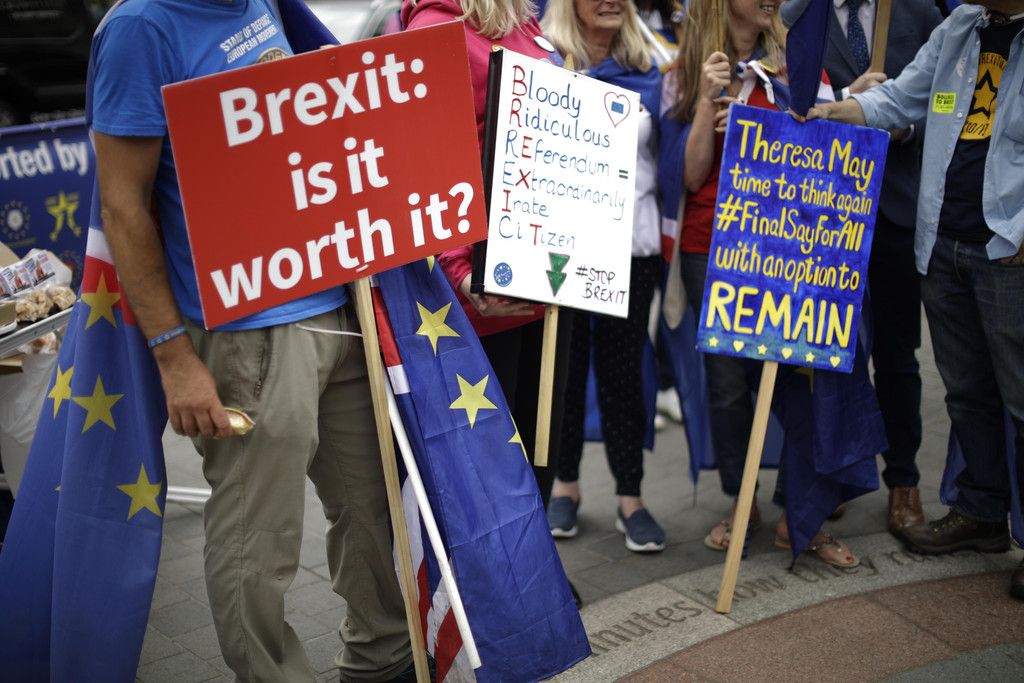 STAND OF DEFIANCE
EUROPEAN MOVEMENT
Brexit:
is it
worth it?
Bloody
Ridiculous
REferendum =
EXtraordinarily
Irate
CiTizen
#STOP
BREXIT
Theresa May
time to think again
#FinalSayForAll
with an option to
REMAIN
orted by
BOLLOCKS
TO BREXIT
minutes how they